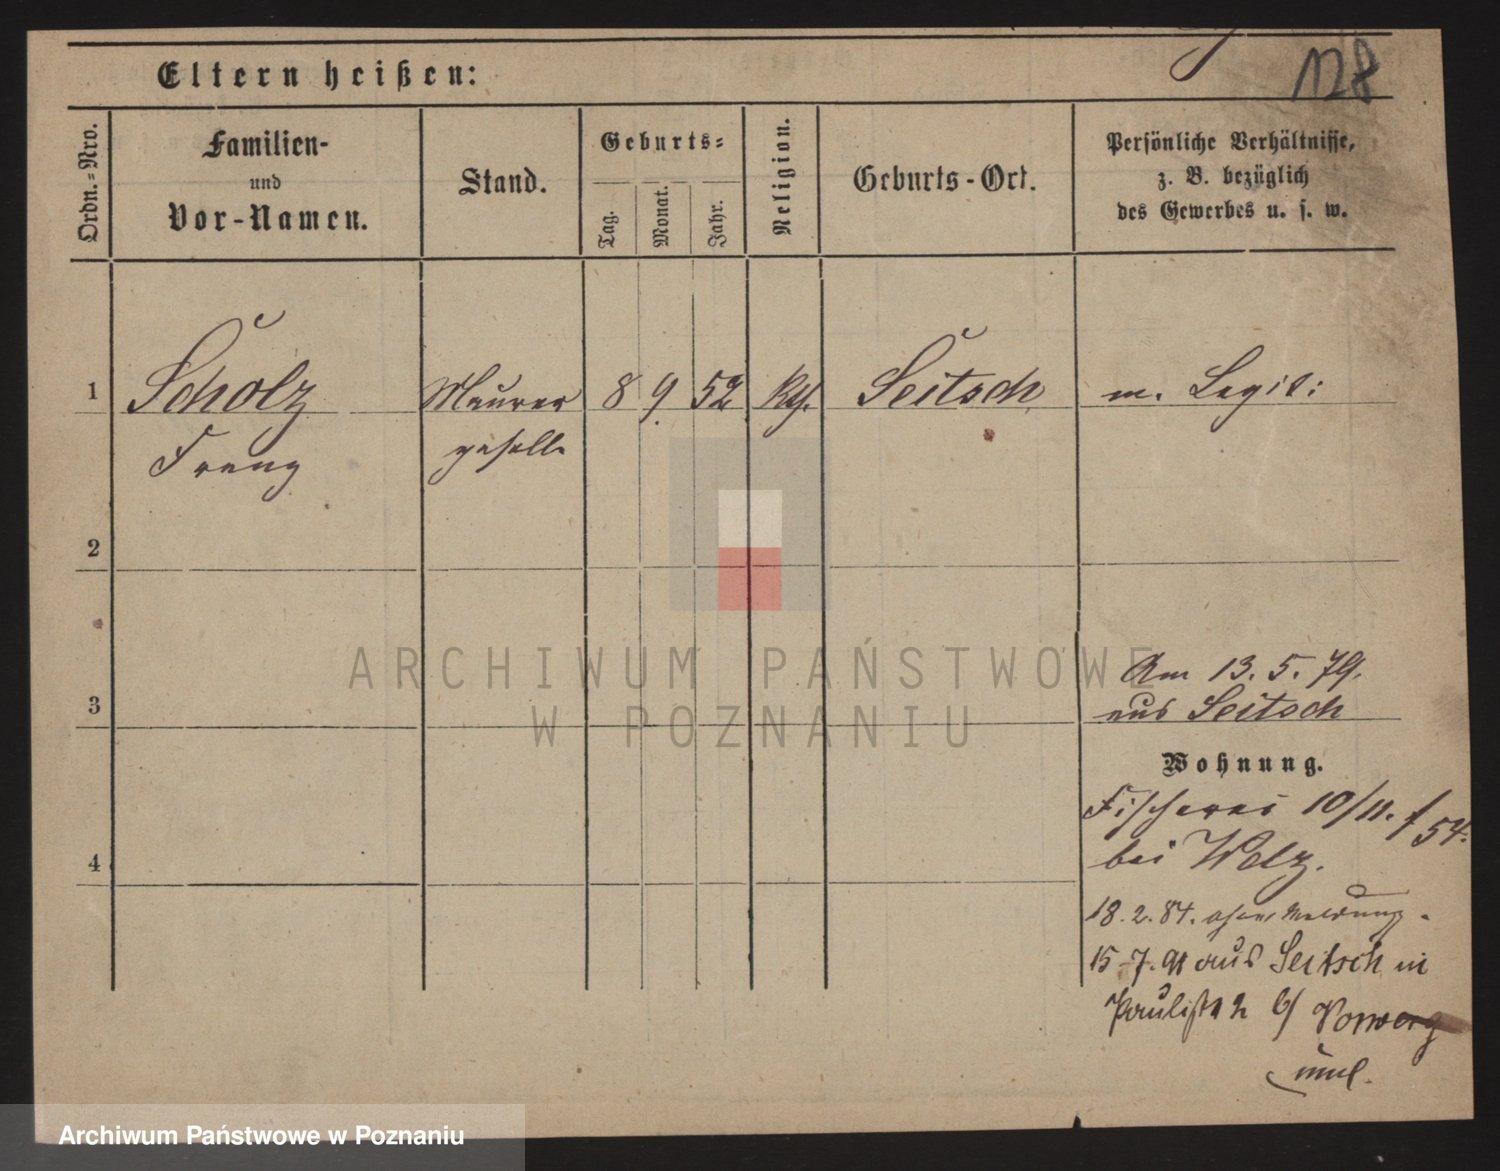 128
Eltern heißen:
Ordn.-Nro.
Familien-
und
Vor-Namen.
Stand.
Geburts-
Tag.
Monat.
Jahr.
Religion.
Geburts-Ort.
Persönliche Verhältnisse,
z. B. bezüglich
des Gewerbes u. s. w.
1
Scholz
Franz
Maurer
gesell
8
9
52
Kth.
Seitsch
m. Legit:
2
Am 13. 5. 79.
aus Seitsch
3
Wohnung.
Fischerei 10/11. f 54.
bei Welz.
4
18. 2. 84. ohne Meldung.
15-7.91 aus Seitsch in
Paulistr 2 b/ Vorwerg
ARCHIWUM PAŃSTWOWE
W POZNANIU
Archiwum Państwowe w Poznaniu